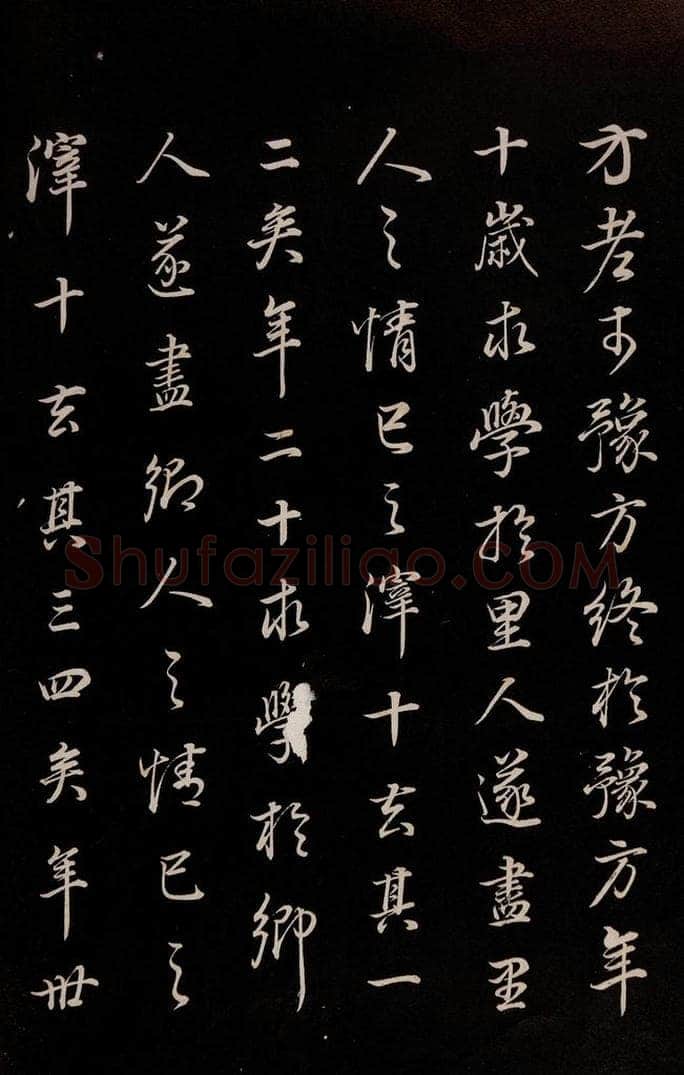 方老於豫方終於豫方年
十歲求學於里人遂盡里
人之情已之滓十去其一
二矣年二十求學於鄉
人遂盡鄉人之情已之
滓十去其三四矣年卅
Shufaziliao.COM